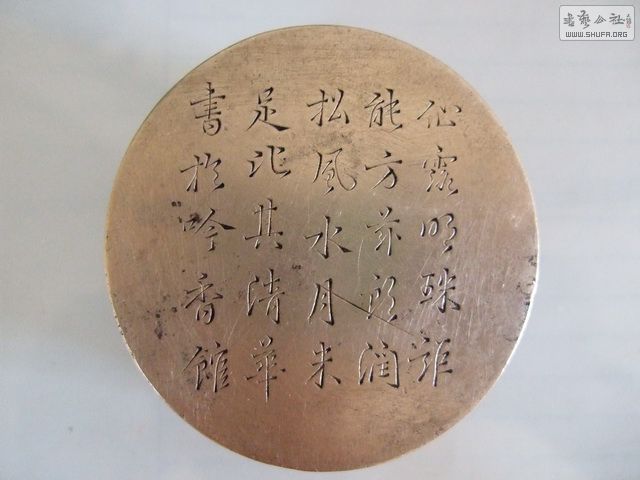 仙露明珠詎
能方茲朗潤
松風水月米
足比其清華
書於吟香館
书艺公社
WWW.SHUFA.ORG